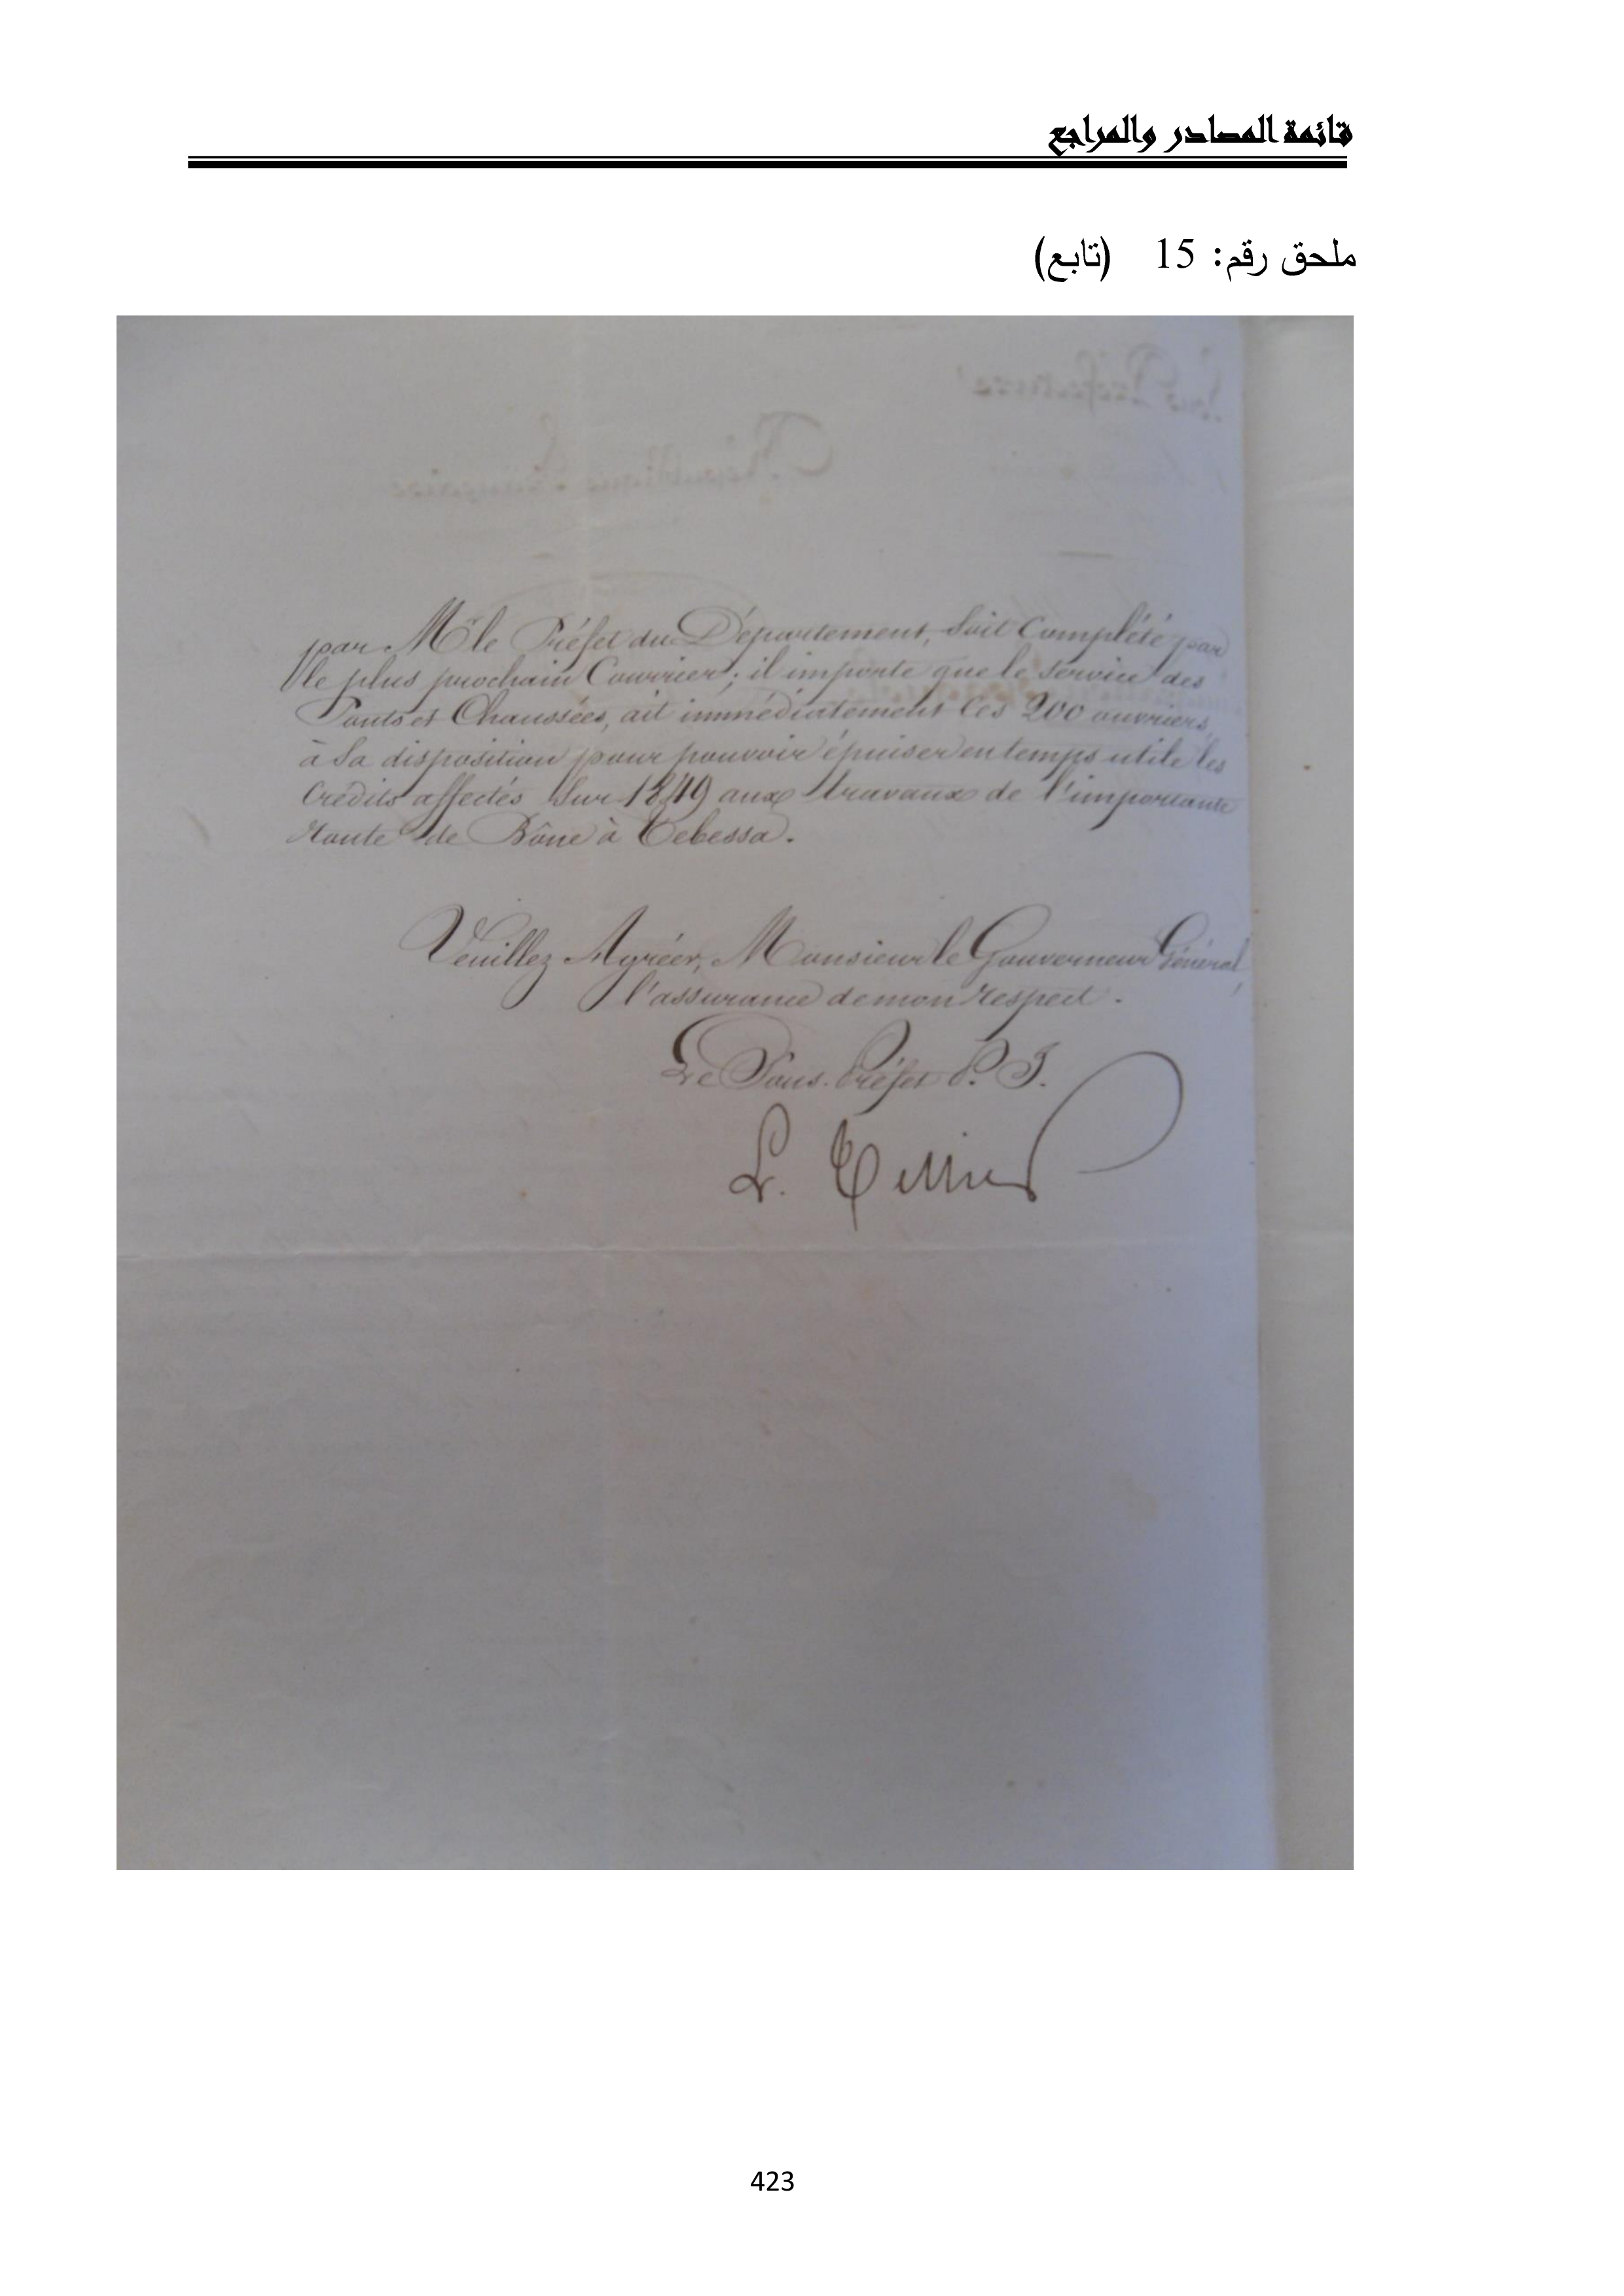 قائمة المصادر والمراجع
ملحق رقم: 15 (تابع)
Sous Préfecture
République Française
par Mr le Préfet du Département, soit Complété par
le plus prochain Courrier; il importe que le service des
Ponts et Chaussées, ait immédiatement ces 200 ouvriers
à sa disposition pour pouvoir épuiser en temps utile les
Crédits affectés sur 1849 aux travaux de l'importante
Route de Bône à Tebessa.
Veuillez Agréer, Monsieur le Gouverneur Général,
l'assurance de mon respect.
Le Sous-Préfet P. I.
L.
423